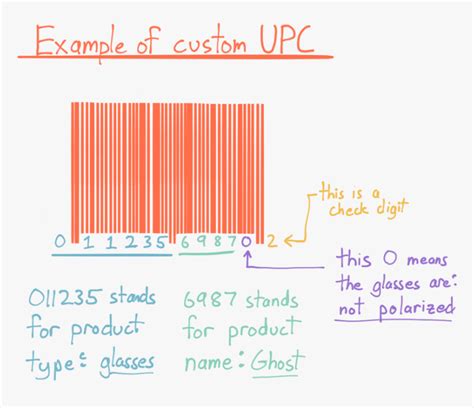 Example of custom UPC
this is a
check digit
0 1 1 2 3 5 6 9 8 7 0 2
this 0 means
the glasses are:
not polarized
011235 stands
for product
type: glasses
6987 stands
for product
name: Ghost